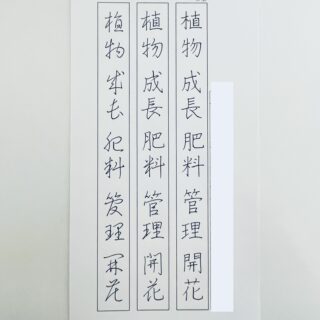 植物 成長 肥料 管理 開花
植物 成長 肥料 管理 開花
植物 成長 肥料 管理 開花